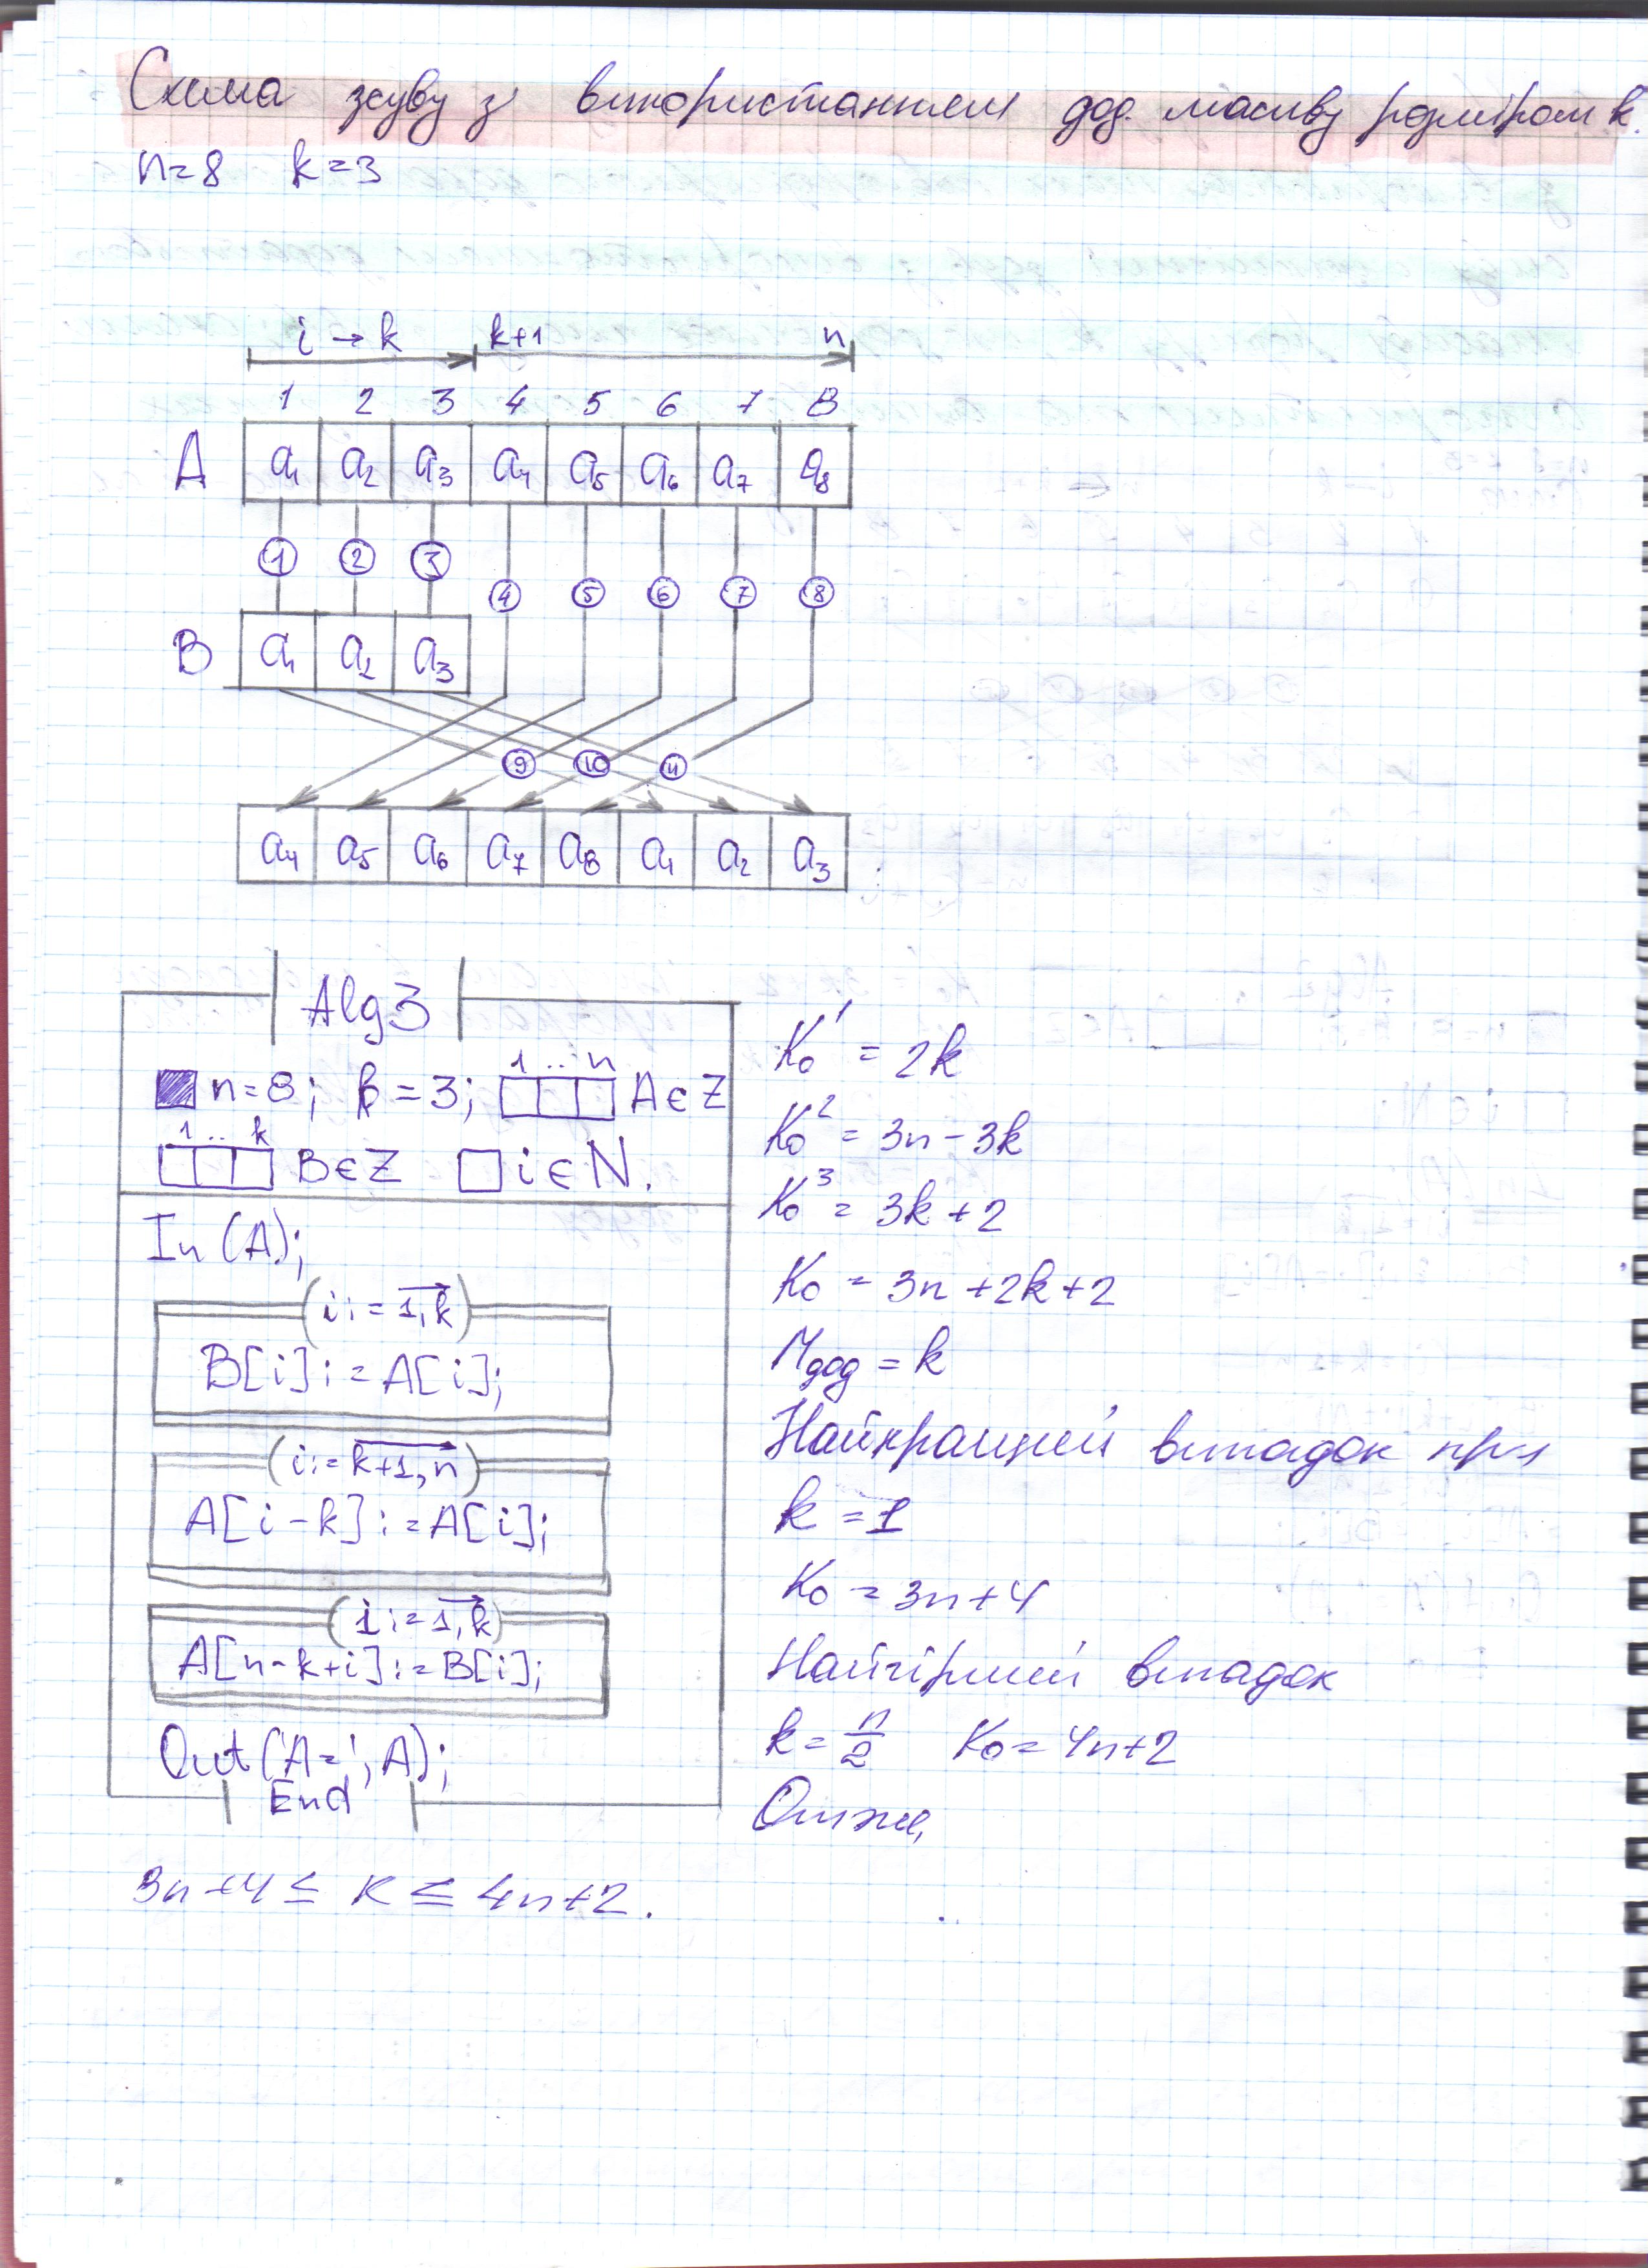 Схема зсуву з використанням дод. масиву розміром k.
n=8 k=3
i → k k+1 n
1 2 3 4 5 6 7 8
A a₁ a₂ a₃ a₄ a₅ a₆ a₇ a₈
① ② ③
④ ⑤ ⑥ ⑦ ⑧
B a₁ a₂ a₃
⑨ ⑩ ⑪
a₄ a₅ a₆ a₇ a₈ a₁ a₂ a₃
Alg3
1...n
n=8; k=3; A∈Z
1.. k
B∈Z i∈N.
In (A);
(i:=1,k)
B[i]:=A[i];
(i:=k+1,n)
A[i-k]:=A[i];
(i:=1,k)
A[n-k+i]:=B[i];
Out('A=', A);
End
K₀¹ = 2k
K₀² = 3n-3k
K₀³ = 3k+2
K₀ = 3n+2k+2
Mдод = k
Найкращий випадок при
k=1
K₀ = 3n+4
Найгірший випадок
k = n/2 K₀=4n+2
Отже,
3n+4 ≤ K ≤ 4n+2.